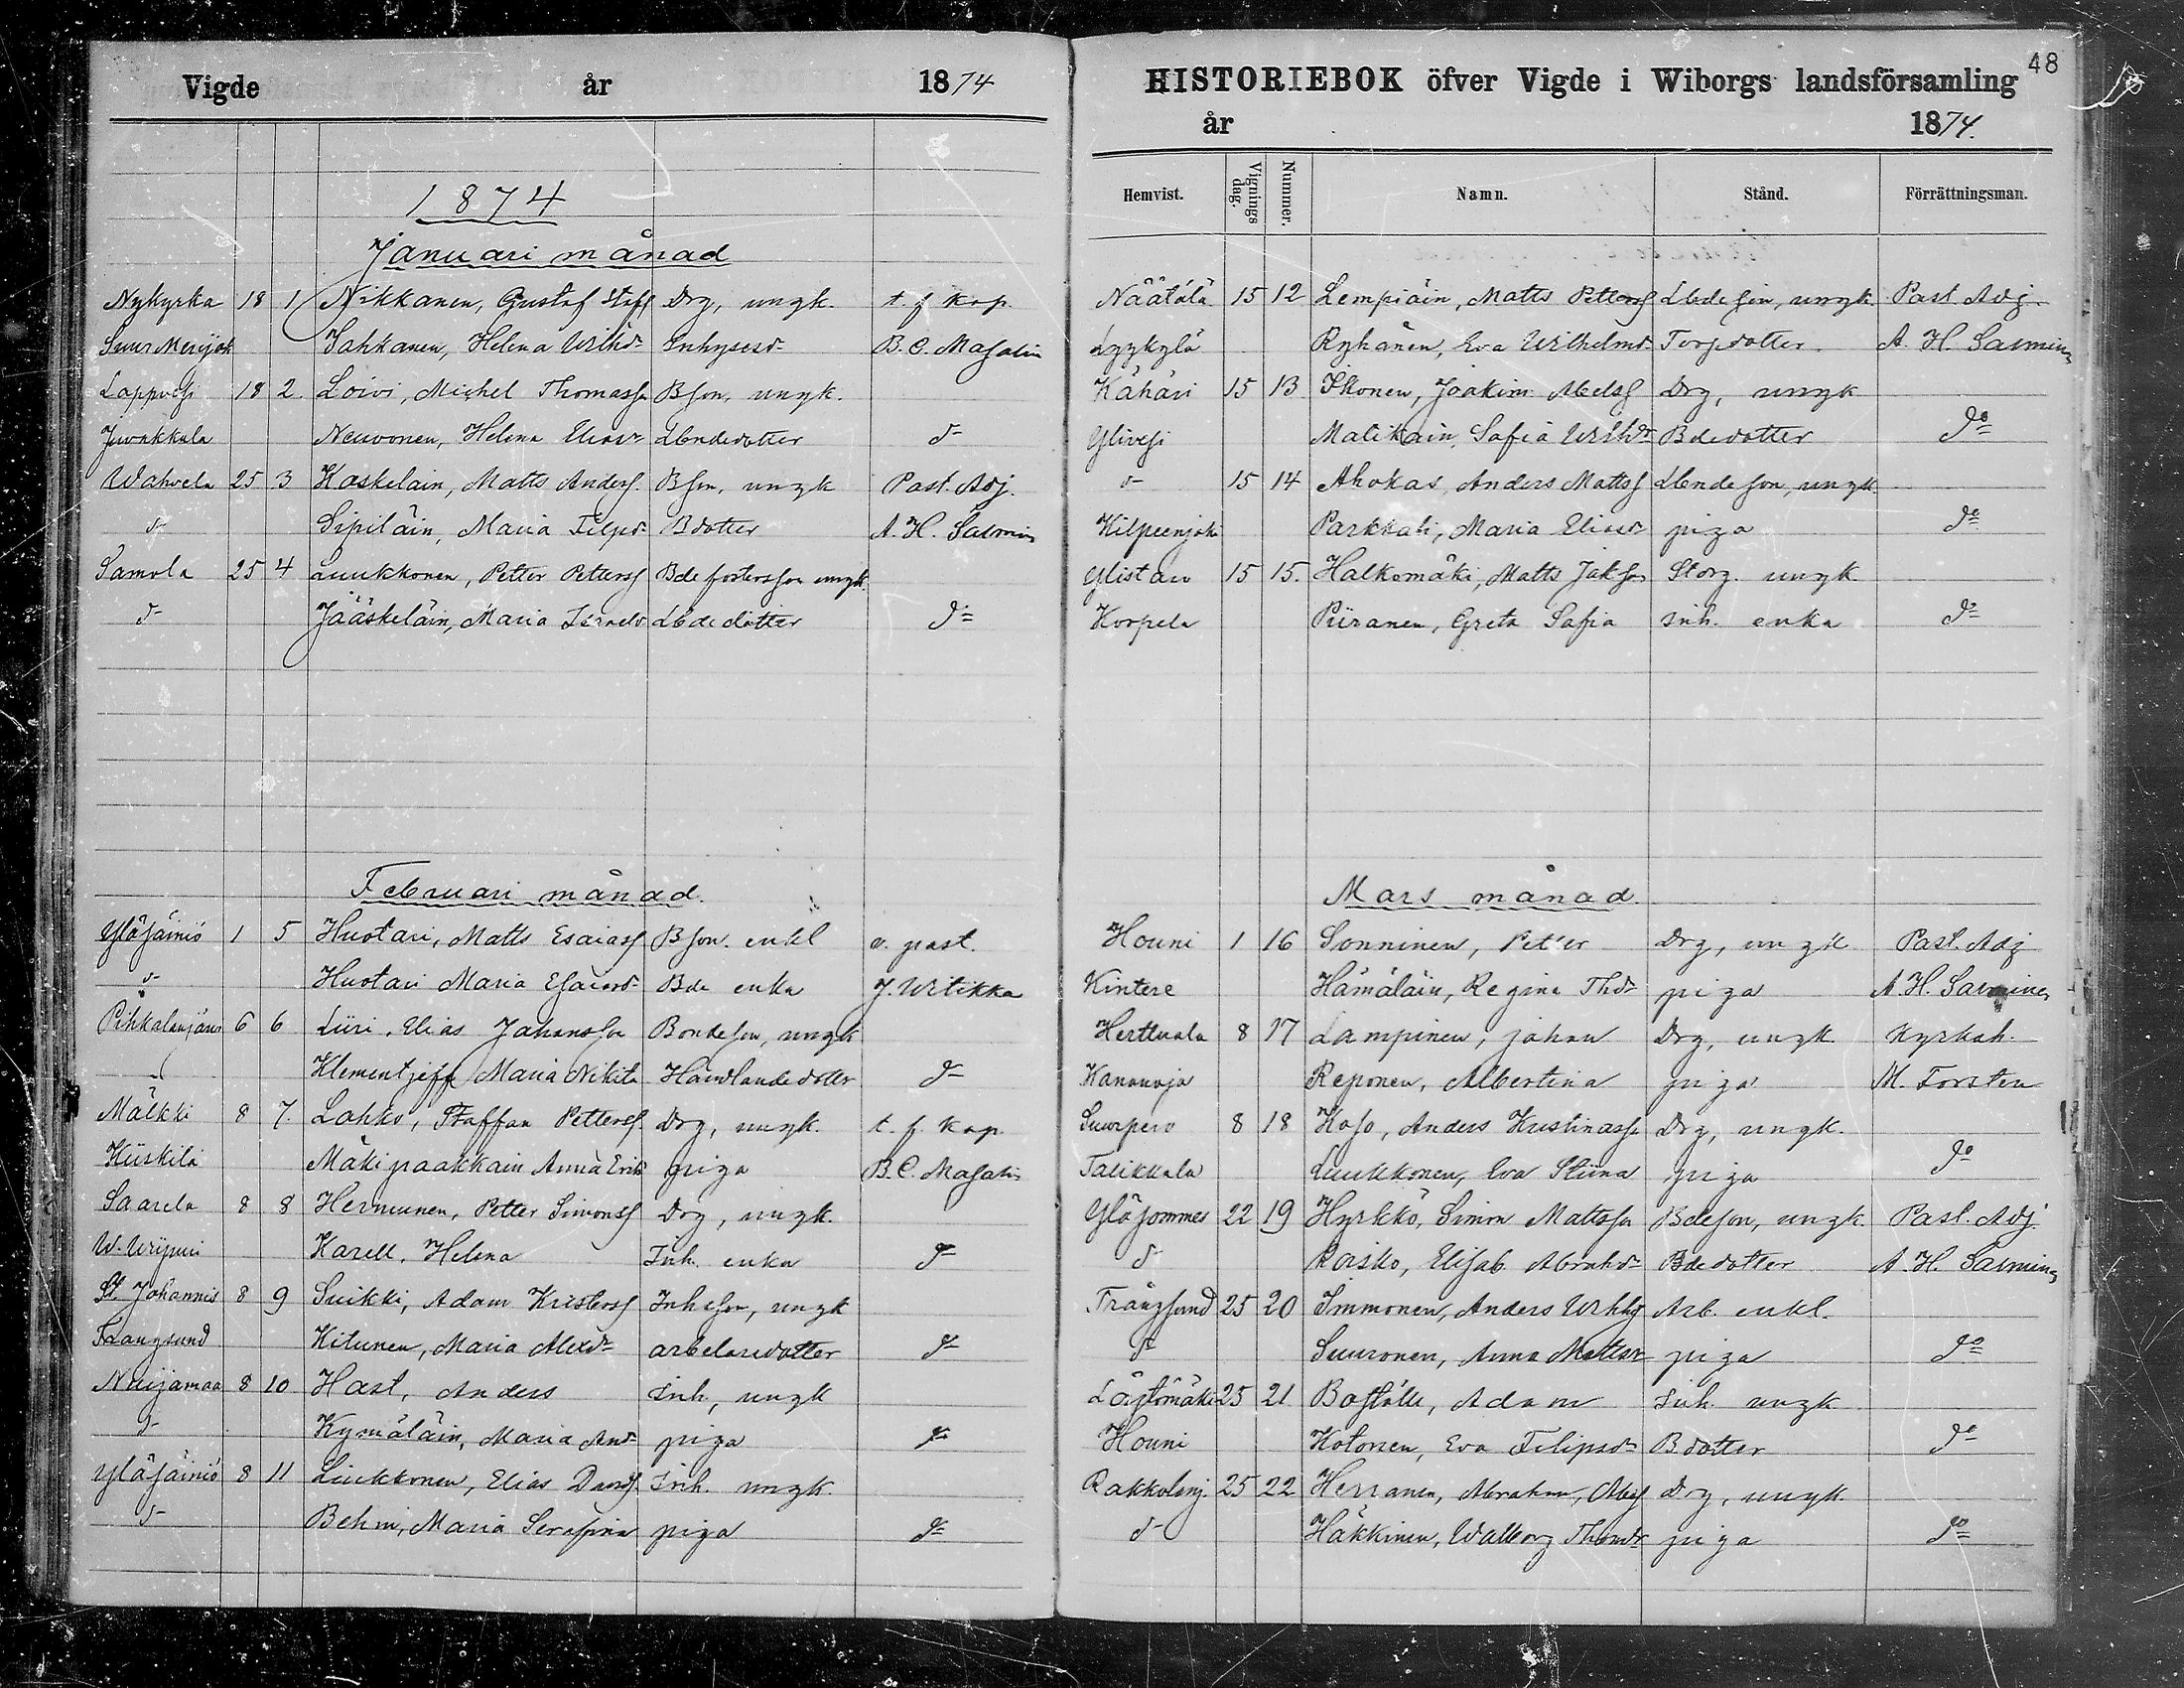 Vigde år 1874
1874
Januari månad
Nykyrka 18 1 Nikkanen, Gustaf Staffs Drg, ungk. t. f. Kap.
Suur Merijok Jahkanen, Helena Wilhdr Inhysesdr B. C. Masalin
Lappvesi 18 2. Loivi, Michel Thomasson Bson, ungk.
Juvakkala Neuvonen, Helena Eliasdr Lbndedotter do
Wahvela 25 3 Kaskelain, Matts Anders. Bson, ungk Past. Adj.
do Sipiläin, Maria Filipsdr Bdotter A. H. Sarmin
Samola 25 4 Luukkonen, Petter Petterss Bde fosterson ungk.
do Jääskeläin, Maria Israelsdr Lbdedotter do
Februari månad.
Yläsäiniö 1 5 Huotari, Matts Esaiass Bson. enkl v. past.
do Huotari Maria Esaiasdr Bde enka J. Witikka
Pihkalanjärvi 6 6 Liiri, Elias Johansson Bondeson, ungk
Klementjeff Maria Nikita Handlandedotter do
Mälkki 8 7. Lahko, Staffan Petters. Drg, ungk. t. f. kap.
Kiiskilä Mäkipaakkain Anna Eriks piga B. C. Masalin
Saarela 8 8 Hermunen, Petter Simonss Drg, ungk.
W. Wiipuri Karell, Helena Inh. enka do
St Johannis 8 9 Suikki, Adam Kristerss Inhsson, ungk
Trangsund Kitunen, Maria Alexdr arbetaredotter do
Nuijamaa 8 10 Hast, Anders Inh, ungk
do Kymäläin, Maria Anddr piga do
Yläsäiniö 8 11 Luukkonen, Elias Davids. Inh. ungk.
do Behm, Maria Serafina piga do
48
HISTORIEBOK öfver Vigde i Wiborgs landsförsamling
år 1874.
Hemvist. Vignings dag. Nummer. Namn. Stånd. Förrättningsman.
Näätälä 15 12 Lempiäin, Matts Petterss Lbdeson, ungk. Past Adj.
Lyykylä Ryhänen, Eva Wilhelmsdr Torpdotter. A. H. Sarmin
Kähäri 15 13 Ikonen, Joakim Abelss Drg, ungk
Ylivesi Matikain, Sofia Wilhdr Bdedotter do
do 15 14 Ahokas, Anders Mattss Lbndeson, ungk.
Kilpeenjoki Parkkali, Maria Eliasdr piga do
Ylistau 15 15. Halkomäki, Matts Jakson Storg. ungk.
Korpela Piiranen, Greta Sofia inh. enka do
Mars månad.
Houni 1 16 Sonninen, Petter Drg, ungk Past. Adj
Kintere Hämäläin, Regina Thdr piga A. H. Sarminen
Herttuala 8 17 Lampinen, Johan Drg, ungk. Kyrkoh.
Kananoja Reponen, Albertina piga M. Forsten
Suurpero 8 18 Koso, Anders Kristinasson Drg, ungk.
Talikkala Luukkonen, Eva Stiina piga do
Yläsommee 22 19 Hyrkkö, Simon Mattsson Bdeson, ungk. Past. Adj.
do Roisko, Elisab. Abrahdr Bdedotter A. H. Sarmin
Trångsund 25 20 Immonen, Anders Wilhs Arb. enkl.
do Suuronen, Anna Mattsdr piga do
Löytömäki 25 21 Boställe, Adam Inh. ungk
Houni Kotonen, Eva Filipsdr Bdotter do
Rakkolanj. 25 22 Herranen, Abraham, Abrs Drg, ungk.
do Häkkinen, Walborg Thomdr piga do